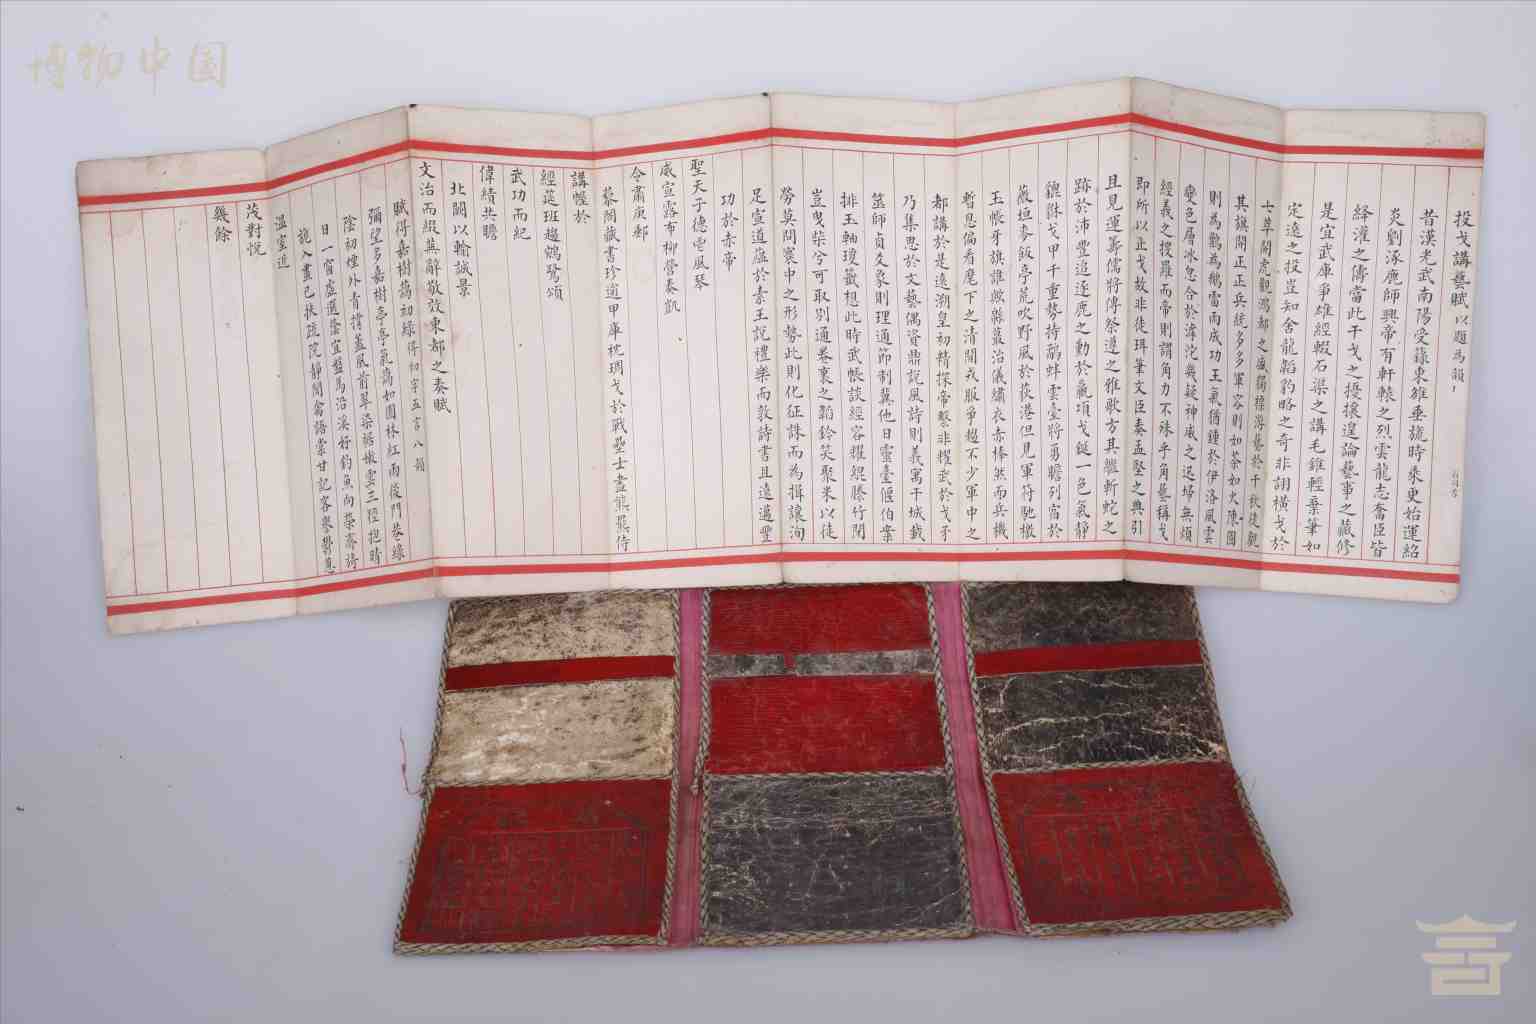 博物中国
投戈講藝賦以題為韻
昔漢光武南陽受籙東雒垂旒時乘更始運紹
炎劉涿鹿師興帝有軒轅之烈雲龍志奮臣皆
絳灌之儔當此干戈之擾攘遑論藝事之藏修
是宜武庫爭雄經輟石渠之講毛錐輕棄筆如
定遠之投豈知舍龍韜豹略之奇非詡橫戈於
七萃開虎觀鴻都之盛獨標游藝於千秋徒觀
其旗開正正兵統多多軍容則如荼如火陳圖
則為鸛為鵝雷雨成功王氣猶鍾於伊洛風雲
變色層冰忽合於滹沱幾疑神威之迅埽無煩
經義之搜羅而帝則謂角力不殊乎角藝稱戈
即所以止戈故非徒珥筆文臣奏孟堅之典引
且見運籌儒將傳祭遵之雅歌方其繼斬蛇之
跡於沛豐追逐鹿之勳於羸項戈鋋一色氣靜
貔貅戈甲千重勢持鷸蚌雲臺將勇瞻列宿於
薇垣麥飯亭荒吹野風於荻港但見軍符馳檄
玉帳牙旗誰與緜蕞治儀繡衣赤棒然而兵機
暫息偏看麾下之清閒戎服爭趨不少軍中之
都講於是遠溯皇初精探帝繫非耀武於戈矛
乃集思於文藝偶資鼎說風詩則義寓干城載
筮師貞爻象則理通節制冀他日靈臺偃伯棐
排玉軸瓊籤想此時武帳談經容耀緄縢竹閉
豈曳柴兮可取別通卷裏之韜鈐笑聚米以徒
勞莫問寰中之形勢此則化征誅而為揖讓洵
足宣道蘊於素王說禮樂而敦詩書且遠邁豐
功於赤帝
聖天子德屯風琴
威宣露布柳營奏凱
令肅庚郵
藜閣藏書珍逾甲庫枕琱戈於戰壘士盡熊羆侍
講幄於
經筵班趨鵷鷺頌
武功而紀
偉績共瞻
北闕以輸誠景
文治而綴蕪辭敬效東都之奏賦
賦得嘉樹藹初綠得初字五言八韻
彌望多嘉樹亭亭氣藹如園林紅雨後門巷綠
陰初煙外青撐蓋風前翠染裾嫩雲三徑抱晴
日一窗虛選蔭宜盤馬沿溪好釣魚向榮齋待
施入畫已扶疏院靜聞禽語棠甘記客譽鬱蔥
溫室近
茂對悅
幾餘